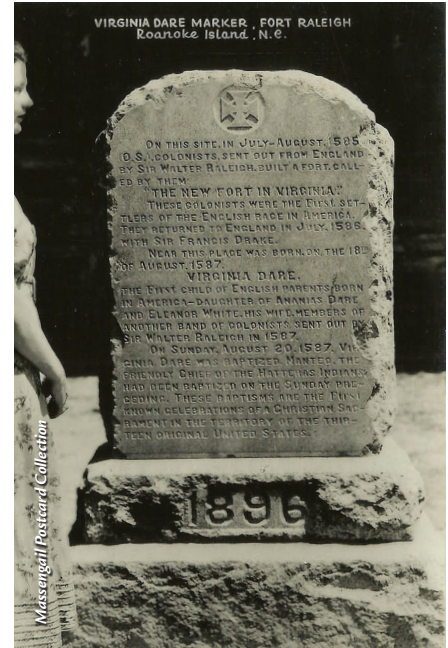 VIRGINIA DARE MARKER, FORT RALEIGH
Roanoke Island, N.C.
ON THIS SITE, IN JULY-AUGUST, 1585
(O.S.), COLONISTS, SENT OUT FROM ENGLAND
BY SIR WALTER RALEIGH, BUILT A FORT, CALL-
ED BY THEM
"THE NEW FORT IN VIRGINIA."
THESE COLONISTS WERE THE FIRST SET-
TLERS OF THE ENGLISH RACE IN AMERICA.
THEY RETURNED TO ENGLAND IN JULY, 1586,
WITH SIR FRANCIS DRAKE.
NEAR THIS PLACE WAS BORN, ON THE 18TH
OF AUGUST, 1587,
VIRGINIA DARE,
THE FIRST CHILD OF ENGLISH PARENTS BORN
IN AMERICA-DAUGHTER OF ANANIAS DARE
AND ELEANOR WHITE, HIS WIFE, MEMBERS OF
ANOTHER BAND OF COLONISTS, SENT OUT BY
SIR WALTER RALEIGH IN 1587.
ON SUNDAY, AUGUST 20, 1587, VIR-
GINIA DARE WAS BAPTIZED. MANTEO, THE
FRIENDLY CHIEF OF THE HATTERAS INDIANS,
HAD BEEN BAPTIZED ON THE SUNDAY PRE-
CEDING. THESE BAPTISMS ARE THE FIRST
KNOWN CELEBRATIONS OF A CHRISTIAN SAC-
RAMENT IN THE TERRITORY OF THE THIR-
TEEN ORIGINAL UNITED STATES.
1896
Massengail Postcard Collection